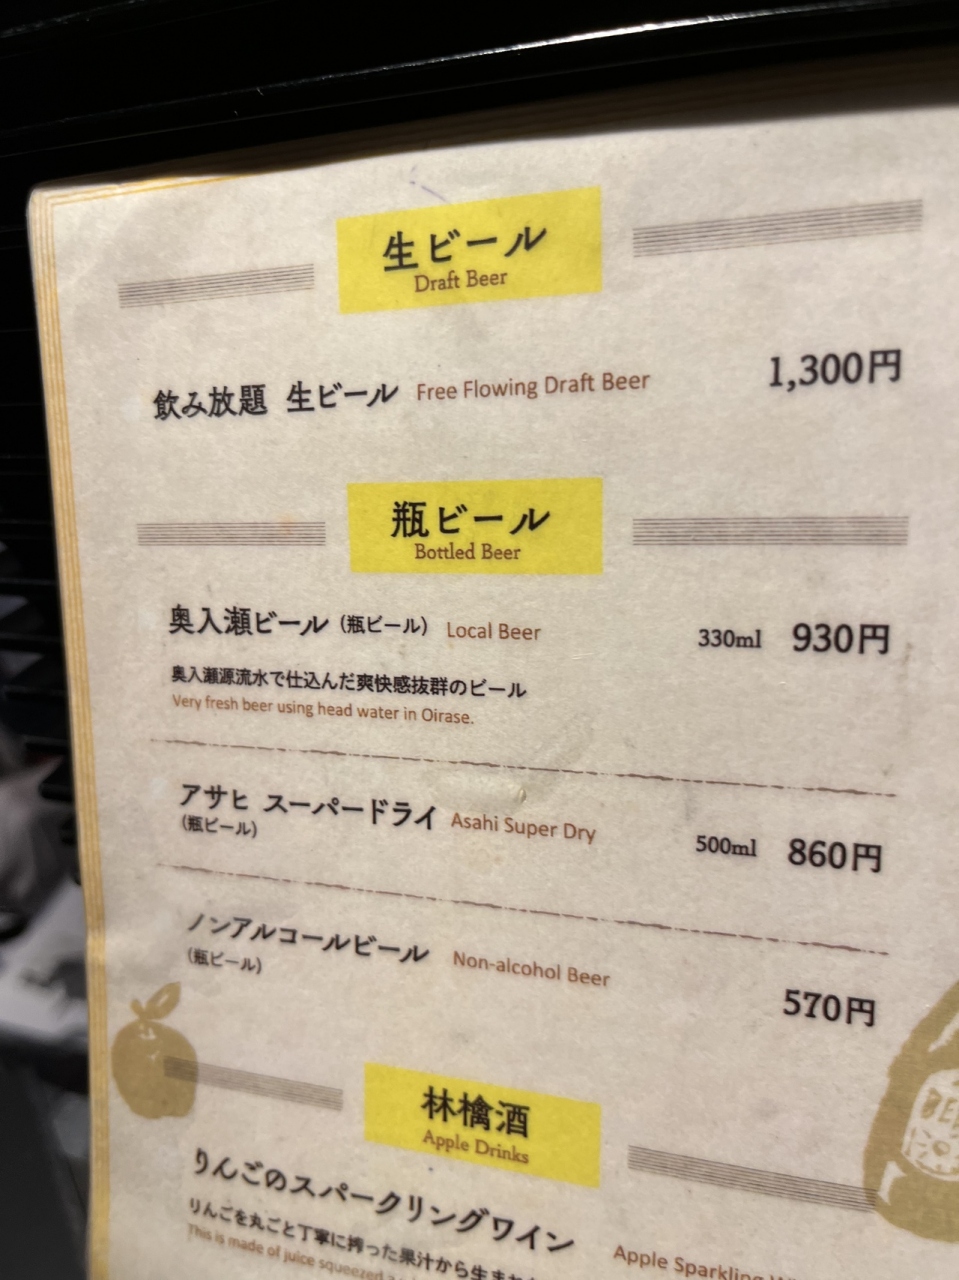 生ビール
Draft Beer
飲み放題 生ビール Free Flowing Draft Beer 1,300円
瓶ビール
Bottled Beer
奥入瀬ビール（瓶ビール） Local Beer 330ml 930円
奥入瀬源流水で仕込んだ爽快感抜群のビール
Very fresh beer using head water in Oirase.
アサヒ スーパードライ Asahi Super Dry 500ml 860円
（瓶ビール）
ノンアルコールビール Non-alcohol Beer 570円
（瓶ビール）
林檎酒
Apple Drinks
りんごのスパークリングワイン Apple Sparkling
りんごを丸ごと丁寧に搾った果汁から生まれ
This is made of juice squeezed